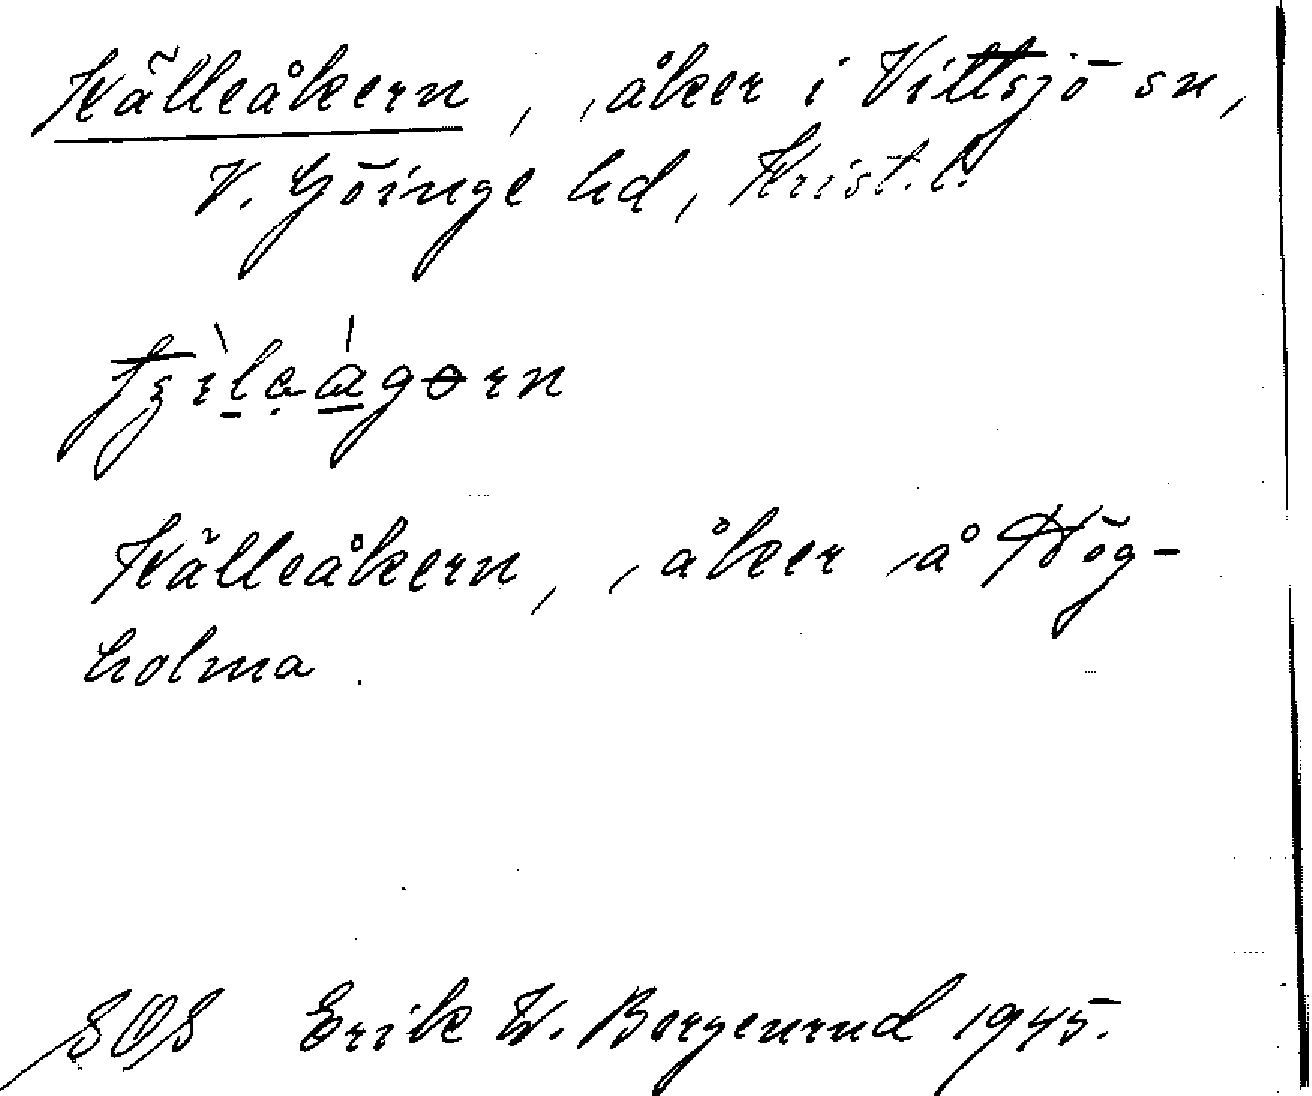 Källeåkern, åker i Vittsjö sn,
V. Göinge hd, Krist. l.
Källeåkern, åker å Hög-
holma.
SOS Erik W. Bergenrud 1945.